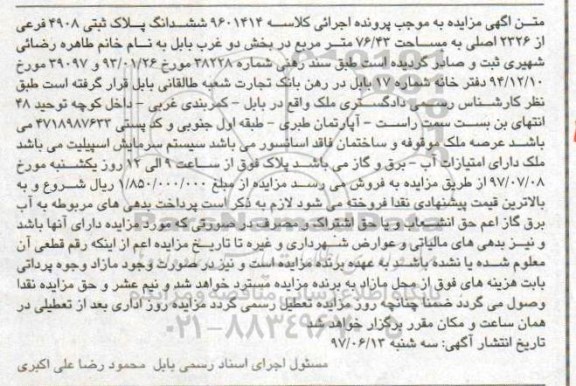 متن آگهی مزایده به موجب پرونده اجرائی کلاسه ۹۶۰۱۴۱۴ ششدانگ پلاک ثبتی ۴۹۰۸ فرعی
از ۲۳۲۶ اصلی به مساحت ۷۶/۴۳ متر مربع در بخش دو غرب بابل به نام خانم طاهره رضائی
شهیری ثبت و صادر گردیده است طبق سند رهنی شماره ۳۸۲۲۸ مورخ ۹۳/۰۱/۲۶ و ۳۹۰۹۷ مورخ
۹۴/۱۲/۱۰ دفتر خانه شماره ۱۷ بابل در رهن بانک تجارت شعبه طالقانی بابل قرار گرفته است طبق
نظر کارشناس رسمی دادگستری ملک واقع در بابل - کمربندی غربی - داخل کوچه توحید ۴۸
انتهای بن بست سمت راست - آپارتمان طبری - طبقه اول جنوبی و کد پستی ۴۷۱۸۹۸۷۶۳۳ می
باشد عرصه ملک موقوفه و ساختمان فاقد آسانسور می باشد سیستم سرمایش اسپیلیت می باشد
ملک دارای امتیازات آب - برق و گاز می باشد پلاک فوق از ساعت ۹ الی ۱۲ روز یکشنبه مورخ
۹۷/۰۷/۰۸ از طریق مزایده به فروش می رسد مزایده از مبلغ ۱/۸۵۰/۰۰۰/۰۰۰ ریال شروع و به
بالاترین قیمت پیشنهادی نقدا فروخته می شود لازم به ذکر است پرداخت بدهی های مربوطه به آب
برق گاز اعم حق انشعاب و یا حق اشتراک و مصرف در صورتی که مورد مزایده دارای آنها باشد
و نیز بدهی های مالیاتی و عوارض شهرداری و غیره تا تاریخ مزایده اعم از اینکه رقم قطعی آن
معلوم شده یا نشده باشد به عهده برنده مزایده است و نیز در صورت وجود مازاد وجوه پرداتی
بابت هزینه های فوق از محل مازاد به برنده مزایده مسترد خواهد شد و نیم عشر و حق مزایده نقدا
وصول می گردد ضمنا چنانچه روز مزایده تعطیل رسمی گردد مزایده روز اداری بعد از تعطیلی در
همان ساعت و مکان مقرر برگزار خواهد شد
۰۲۱-۸۸۳۴۹۶۷۰
تاریخ انتشار آگهی: سه شنبه ۹۷/۰۶/۱۳
مسئول اجرای اسناد رسمی بابل محمود رضا علی اکبری